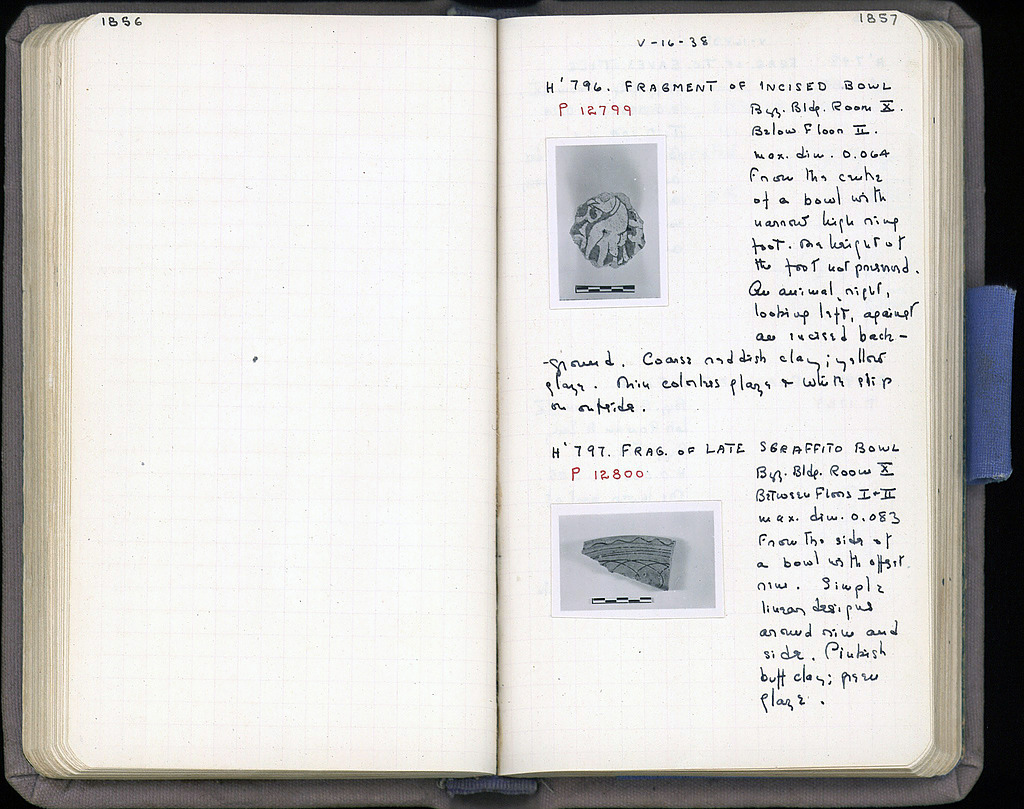 1856
1857
V-16-38
H' 796. FRAGMENT OF INCISED BOWL
P 12799
Byz. Bldg. Room X.
Below Floor II.
max. dim. 0.064
From the centre
of a bowl with
narrow high ring
foot. The height of
the foot not preserved.
An animal, right,
looking left, against
an incised back-
-ground. Coarse reddish clay; yellow
glaze. Thin colorless glaze & white slip
on outside.
H' 797. FRAG. OF LATE SGRAFFITO BOWL
P 12800
Byz. Bldg. Room X
Between Floors I & II
max. dim. 0.083
From the side of
a bowl with offset
rim. Simple
linear designs
around rim and
side. Pinkish
buff clay; green
glaze.